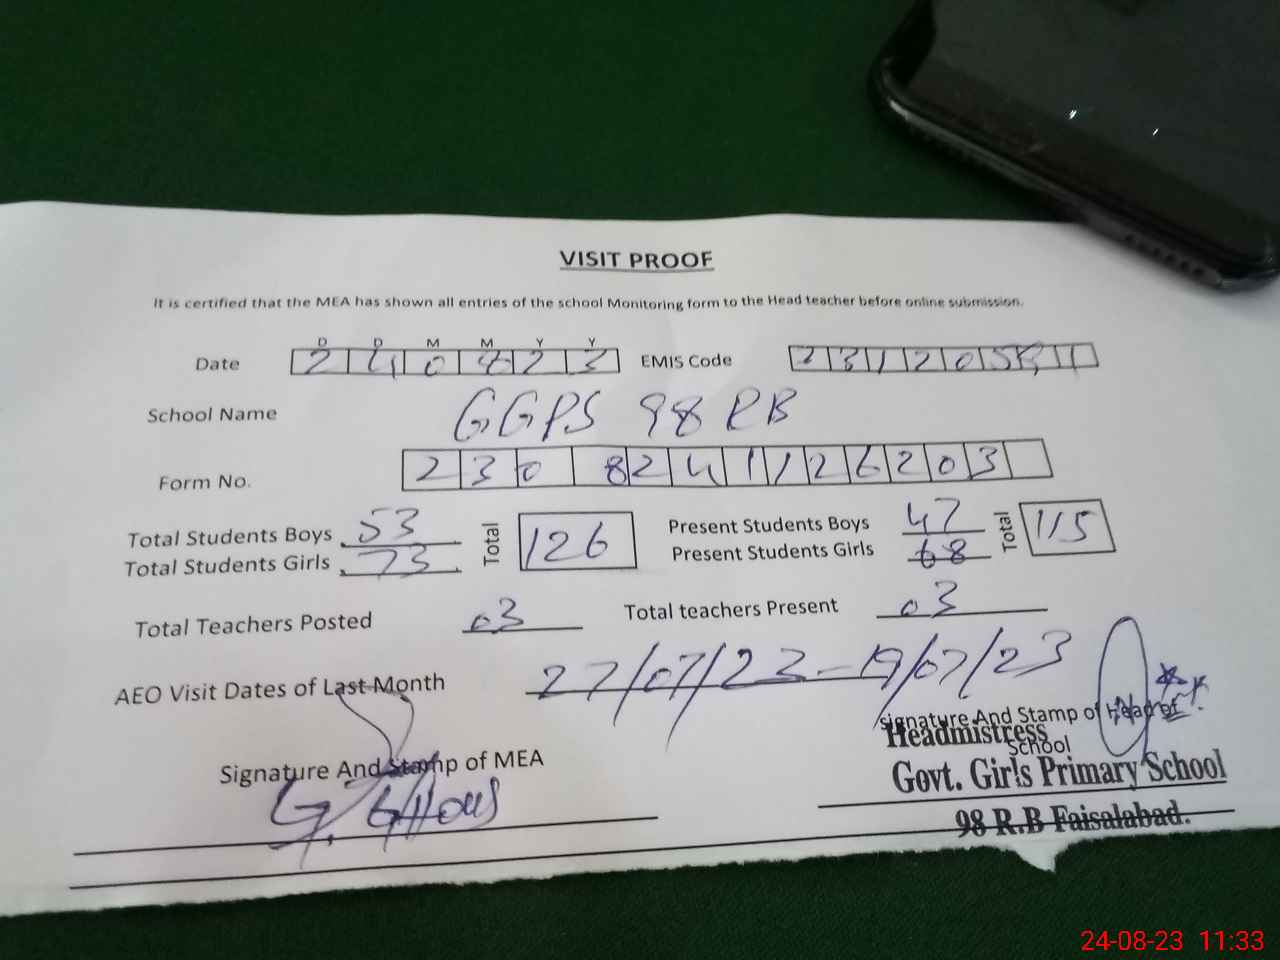 VISIT PROOF
It is certified that the MEA has shown all entries of the school Monitoring form to the Head teacher before online submission.
D D M M Y Y
Date 2 4 0 8 2 3 EMIS Code
School Name GGPS 98 RB
Form No. 2 3 0 8 2 4 1 1 2 6 2 0 3
Total Students Boys 53 Total 126 Present Students Boys 47 Total 115
Total Students Girls 73 Present Students Girls 68
Total Teachers Posted 03 Total teachers Present 03
AEO Visit Dates of Last Month 27/07/23 - 19/07/23
Signature And Stamp of MEA
signature And Stamp of Head of
School
Headmistress
Govt. Girls Primary School
98 R.B Faisalabad.
24-08-23 11:33